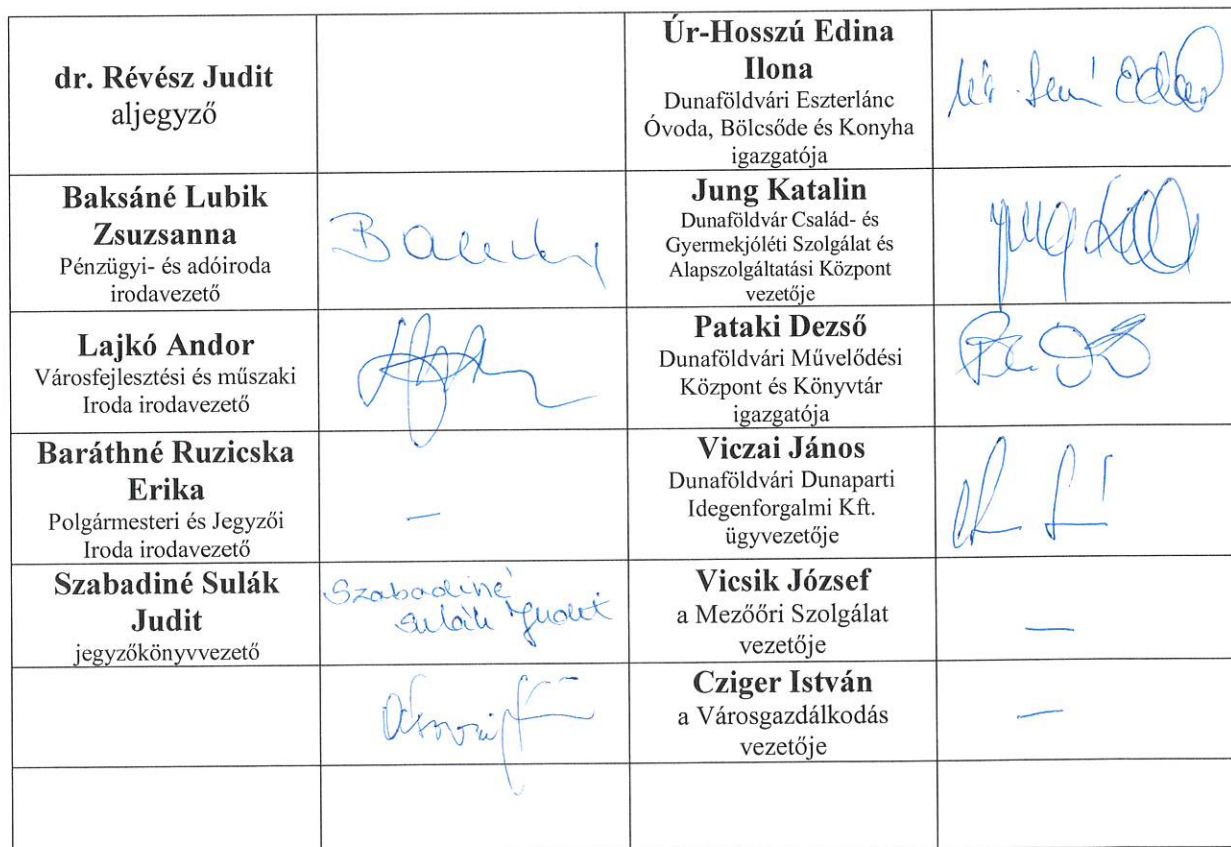 dr. Révész Judit
aljegyző
Úr-Hosszú Edina
Ilona
Dunaföldvári Eszterlánc
Óvoda, Bölcsőde és Konyha
igazgatója
Baksáné Lubik
Zsuzsanna
Pénzügyi- és adóiroda
irodavezető
Jung Katalin
Dunaföldvár Család- és
Gyermekjóléti Szolgálat és
Alapszolgáltatási Központ
vezetője
Lajkó Andor
Városfejlesztési és műszaki
Iroda irodavezető
Pataki Dezső
Dunaföldvári Művelődési
Központ és Könyvtár
igazgatója
Baráthné Ruzicska
Erika
Polgármesteri és Jegyzői
Iroda irodavezető
—
Viczai János
Dunaföldvári Dunaparti
Idegenforgalmi Kft.
ügyvezetője
Szabadiné Sulák
Judit
jegyzőkönyvvezető
Szabadiné
Sulák Judit
Vicsik József
a Mezőőri Szolgálat
vezetője
—
Cziger István
a Városgazdálkodás
vezetője
—